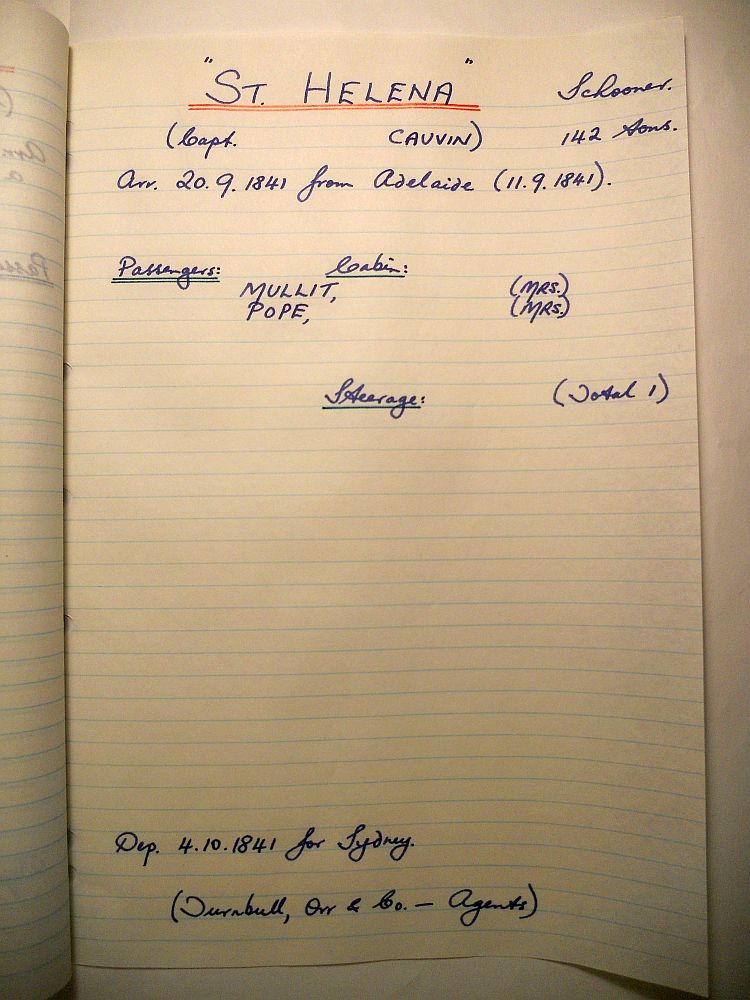 "ST. HELENA" Schooner.
(Capt. CAUVIN) 142 Tons.
Arr. 20.9.1841 from Adelaide (11.9.1841).
Passengers: Cabin:
MULLIT, (MRS.)
POPE, (MRS.)
Steerage: (Total 1)
Dep. 4.10.1841 for Sydney.
(Turnbull, Orr & Co. — Agents)